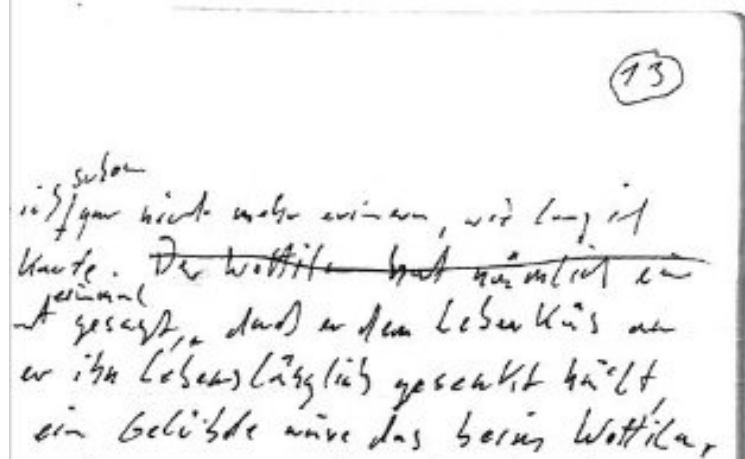 13
schon
ich gar nicht mehr erinnern, wie lang ich
kante. Der Wottila hat nämlich ein
einmal
gesagt, daß er den Leberkäs
er ihn lebenslänglich gesenkt hält,
ein Gelübde wäre das beim Wottila,